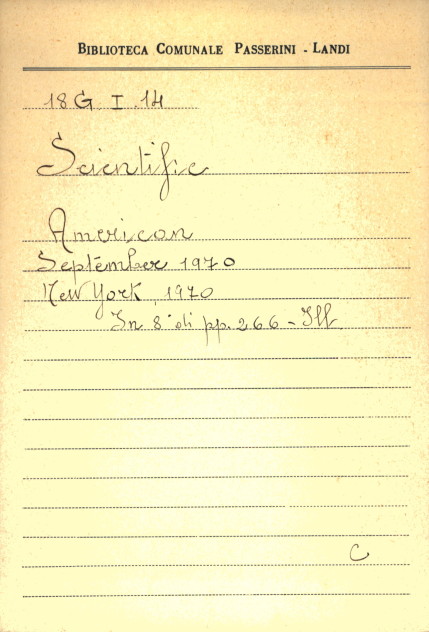 BIBLIOTECA COMUNALE PASSERINI - LANDI
18 G. I. 14
Scientific
American
September 1970
New York, 1970
In 8° di pp. 266 - Ill
C